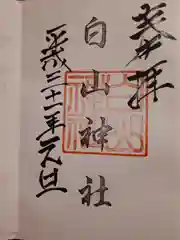 奉拝
白山神社
平成二十一年元旦